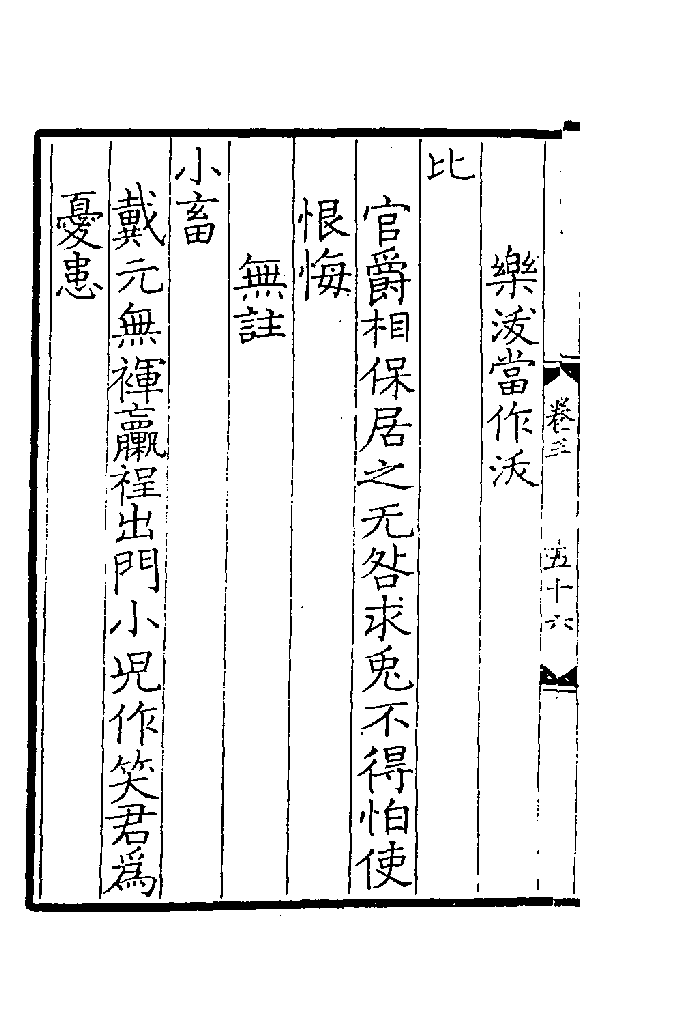 卷三
五十六
樂泼當作沃
比
官爵相保居之无咎求兎不得怕使
恨悔
無註
小畜
戴元無褌蠃裎出門小児作笑君爲
憂患